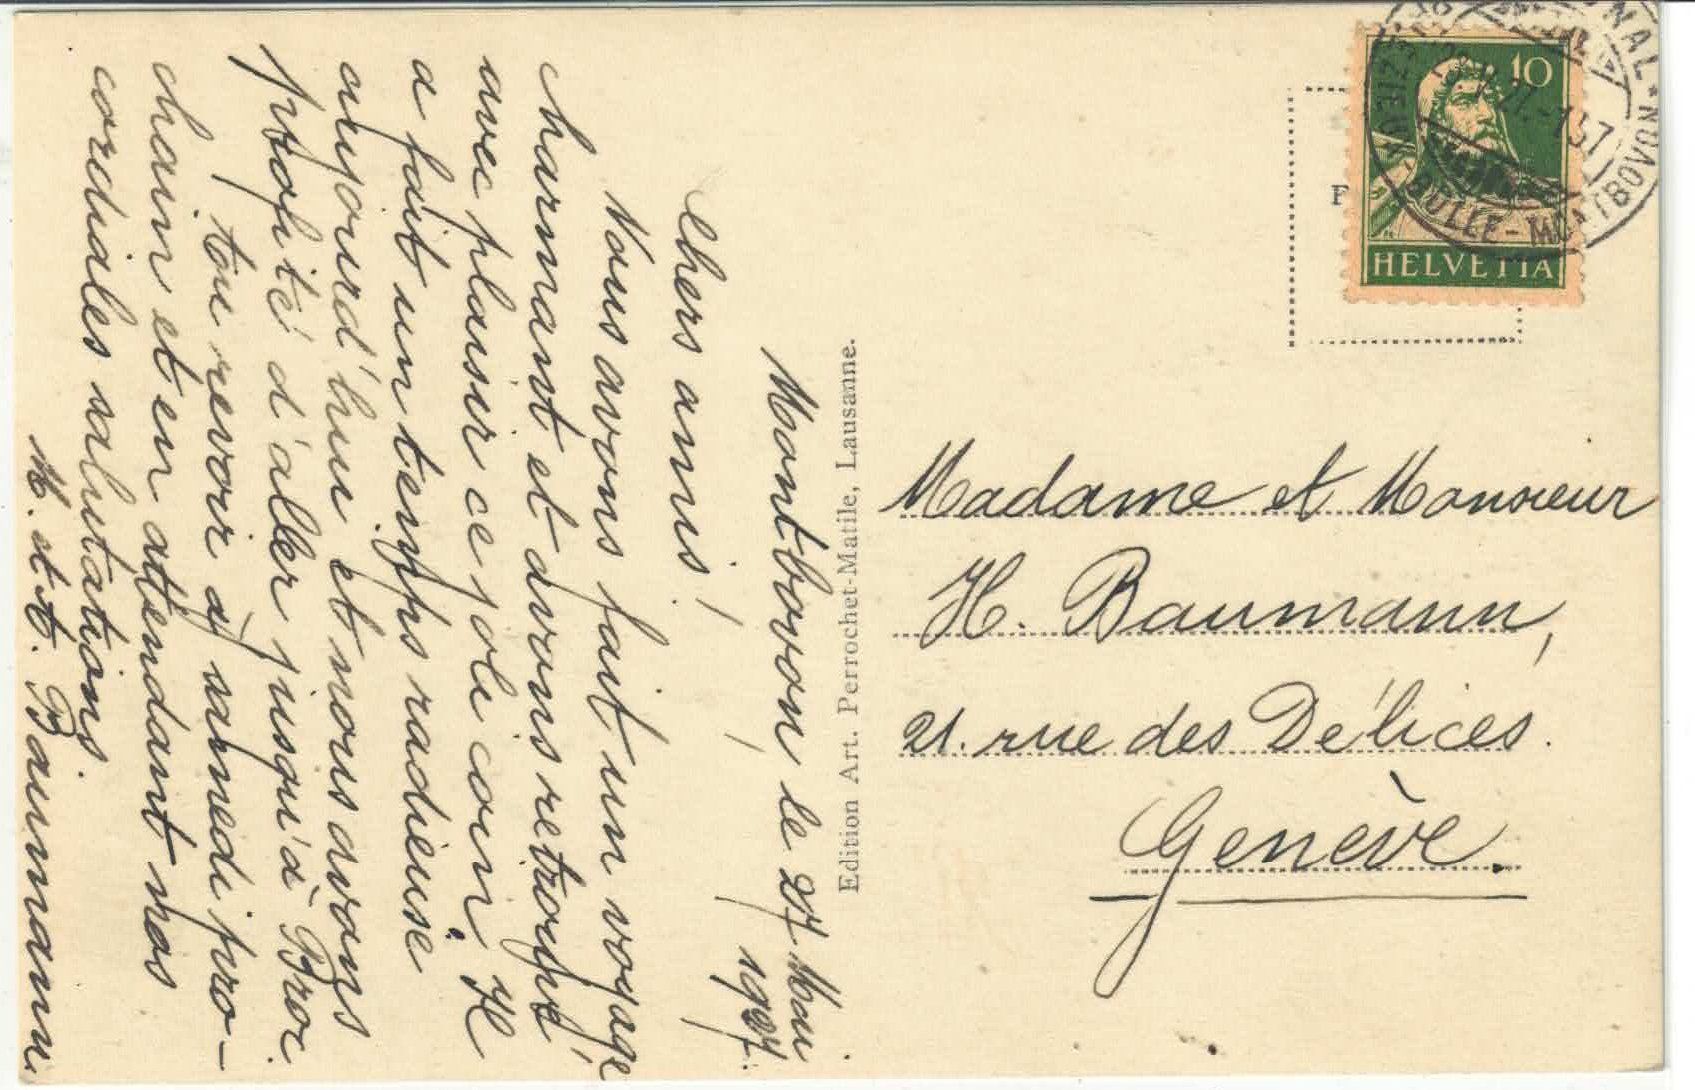 Montbovon, le 27 Mai
1927.
Chers amis!
Nous avons fait un voyage
charmant et avons retrouvé
avec plaisir ce joli coin. Il
a fait un temps radieuse
aujourd'hui et nous avons
profité d'aller jusqu'à Broc.
Au revoir à samedi pro-
chain et en attendant nos
cordiales salutations.
M. et t. Baumann.
Edition Art. Perrochet-Matile, Lausanne.
10
HELVETIA
BULLE - MONTBOVON
Madame et Monsieur
H. Baumann,
21. rue des Délices.
Genève.